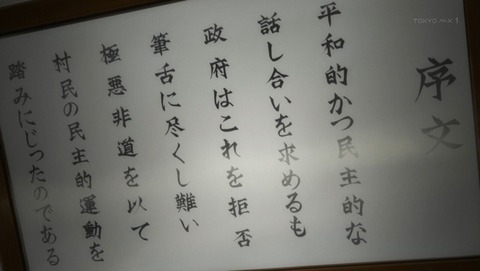 TOKYO MX 1
序文
平和的かつ民主的な
話し合いを求めるも
政府はこれを拒否
筆舌に尽くし難い
極悪非道を以て
村民の民主的運動を
踏みにじったのである